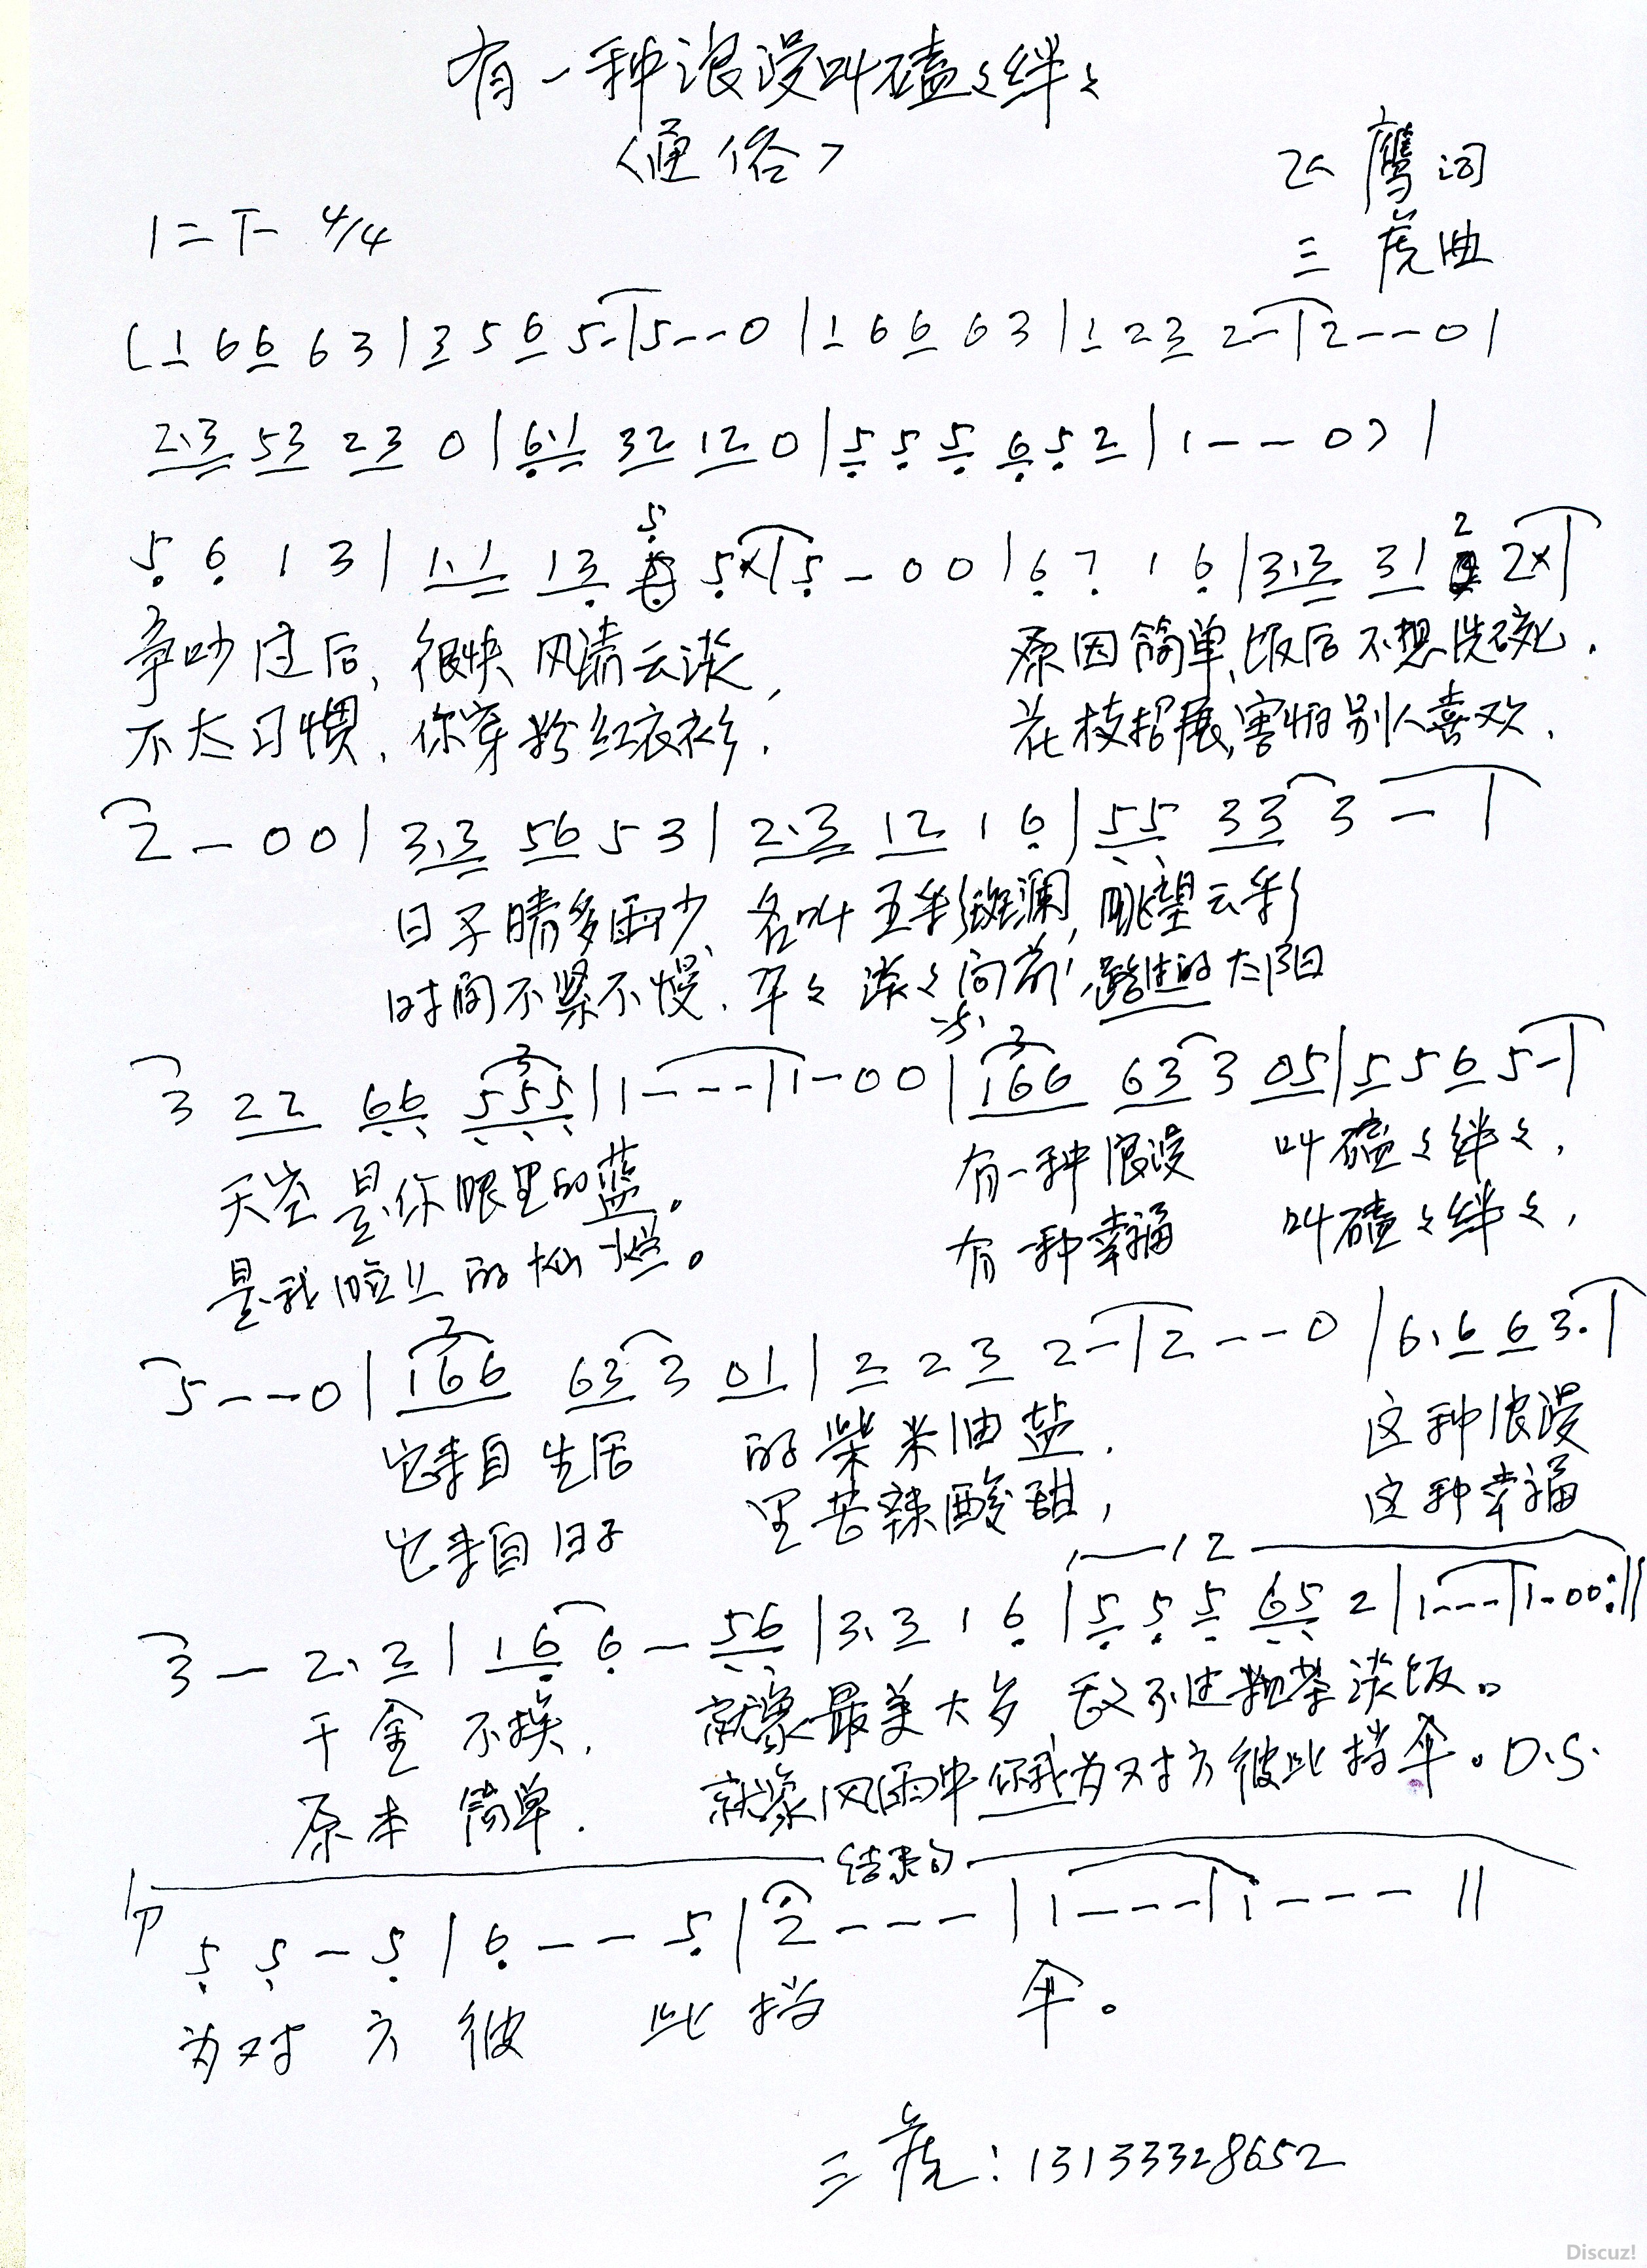 有一种浪漫叫磕々绊々
<通俗>
飞鹰词
1=F 4/4
三虎曲
(1 6 6 6 3 | 3 5 6 5 - | 5 - - 0 | 1 6 6 6 3 | 1 2 3 2 - | 2 - - 0 |
2.3 53 23 0 | 6.1 32 12 0 | 5 5 5 6 5 2 | 1 - - 0) |
5 6 1 3 | 1.1 13 5 5 x | 5 - 0 0 | 6 7 1 6 | 3.3 31 2 2 x |
争吵过后，很快风清云淡， 原因简单，饭后不想洗碗．
不太习惯，你穿粉红衣衫． 花枝招展，害怕别人喜欢．
2 - 0 0 | 3.3 56 5 3 | 2.3 12 1 6 | 55 33 3 - |
日子晴多雨少，名叫五彩斑斓，眺望云彩
时间不紧不慢．平々淡々向前，路过的太阳
3 22 66 555 | 1 - - - | 1 - 0 0 | 166 63 3 05 | 5 5 6 5 - |
天空是你眼里的蓝。 有一种浪漫 叫磕々绊々，
是我 的 。 有一种幸福 叫磕々绊々，
5 - - 0 | 166 63 3 01 | 2 2 3 2 - | 2 - - 0 | 6. 6 6 3. |
它来自生活 的柴米油盐． 这种浪漫
它来自日子 里苦辣酸甜， 这种幸福
1 2
3 - 2. 2 | 1 6 6 - 56 | 3. 3 1 6 | 5 5 5 65 2 | 1 - - - | 1 - 0 0 :||
千金不换． 就象最美大多 不过粗茶淡饭。
原本简单． 就象风雨中你我为对方彼此挡伞。D.S.
结束句
5 5 - 5 | 6 - - 5 | 2 - - - | 1 - - - | 1 - - - ||
为对方彼此挡 伞。
三虎：13133328652
Discuz!